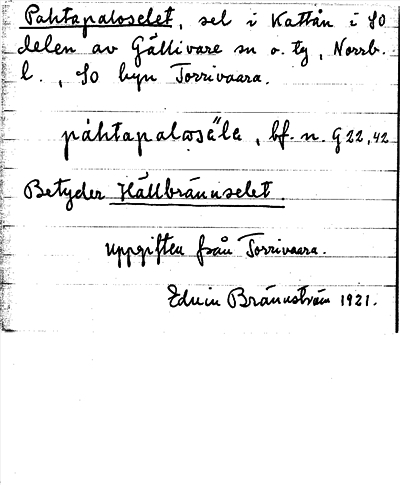 Pahtapaloselet, sel i Kattån i SO
delen av Gällivare sn o. tg, Norrb.
l., SO byn Torrivaara.
páhtapaloasäla, bf. n. G 22,42
Betyder Hällbrännselet.
uppgiften från Torrivaara.
Edvin Brännström 1921.